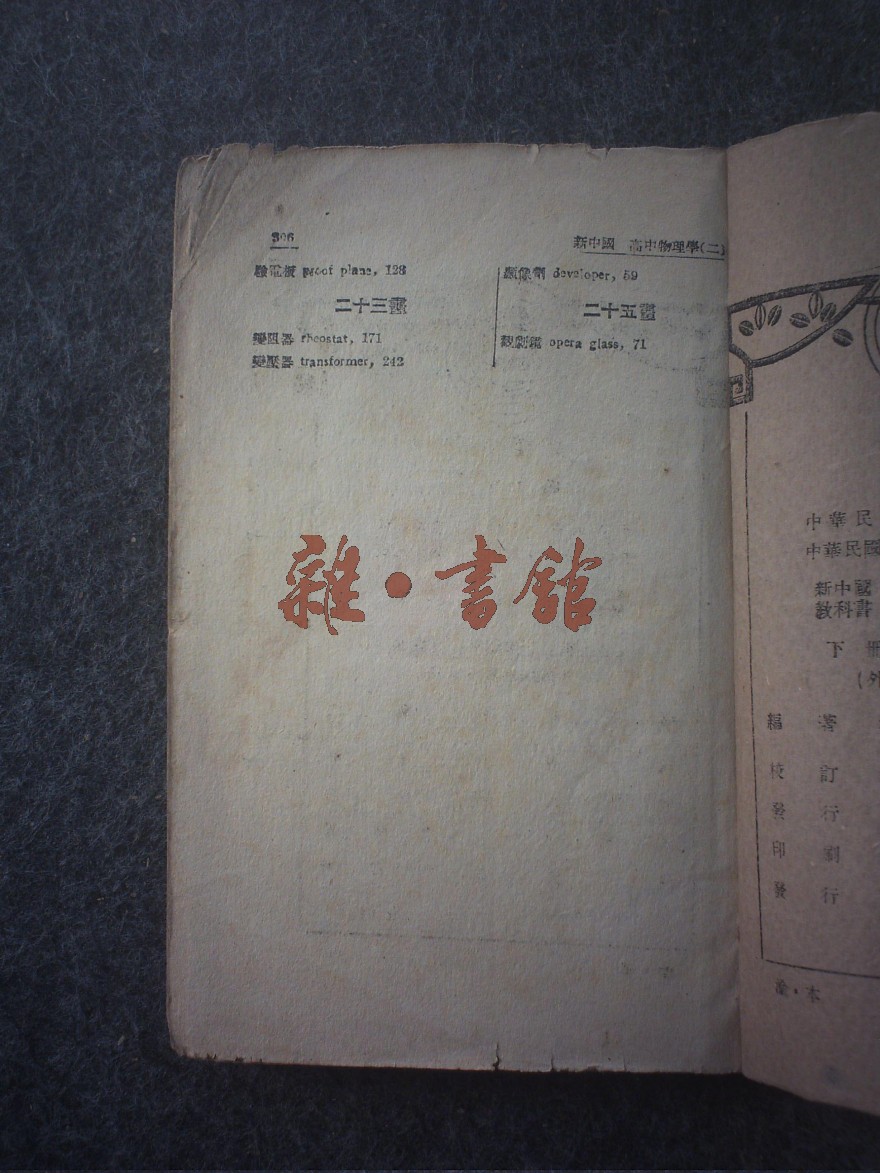 306
新中國 高中物理學(二)
驗電板 proof plane, 128
二十三畫
變阻器 rheostat, 171
變壓器 transformer, 242
顯像劑 developer, 59
二十五畫
觀劇鏡 opera glass, 71
雜·書館
中華民
中華民國
新中國
教科書
下冊
(外
編著
校訂
發行
印刷
發行
渝·本